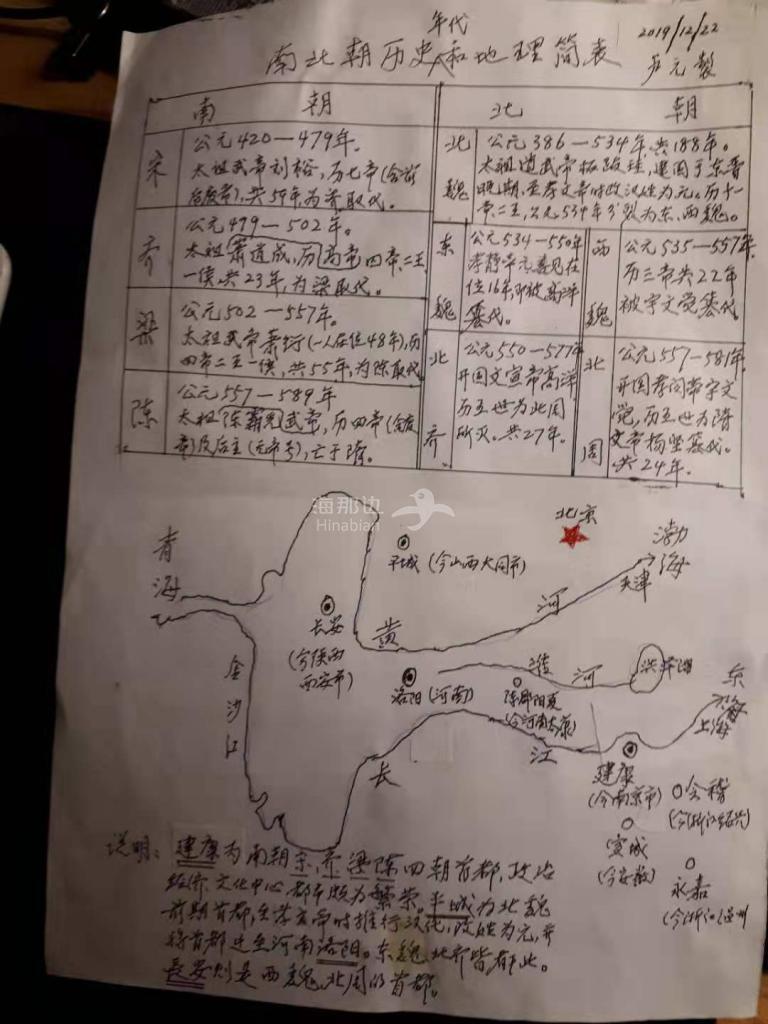 年代
2019/12/22
南北朝历史和地理简表
卢元製
南 朝
北 朝
宋
公元420—479年。
太祖武帝刘裕,历七帝(含前
后废帝),共59年,为齐取代。
齐
公元479—502年。
太祖萧道成,历高帝四帝、二王
一侯,共23年,为梁取代。
梁
公元502—557年。
太祖武帝萧衍(一人在位48年),历
四帝二王一侯,共55年,为陈取代
陈
公元557—589年
太祖陈霸先武帝,历四帝(含废
帝)及后主(无帝号),亡于隋。
北魏
公元386—534年,共188年。
太祖道武帝拓跋珪,建国于东晋
晚期,至孝文帝时改汉姓为元。历十一
帝、二王,公元534年分裂为东、西魏。
东魏
公元534—550年
孝静帝元善见在
位16年,即被高洋
篡代。
西魏
公元535—557年
历三帝共22年
被宇文觉篡代
北齐
公元550—577年
开国文宣帝高洋
历五世为北周
所灭。共27年。
北周
公元557—581年
开国孝闵帝宇文
觉,历五世为隋
文帝杨坚篡代。
共24年。
海那边
Hinabian
北京
青海
平城(今山西大同市)
渤海
天津
河
长安
(今陕西
西安市)
黄
金沙江
洛阳(河南)
淮 河
洪泽湖
陈郡阳夏
(今河南太康)
东海
上海
长
江
建康
(今南京市)
会稽
(今浙江绍兴)
宣城
(今安徽)
永嘉
(今浙江温州
说明:建康为南朝宋、齐、梁、陈四朝首都,政治
经济文化中心,都市颇为繁荣。平城为北魏
前期首都,至孝文帝时推行汉化,改姓为元,并
将首都迁至河南洛阳。东魏、北齐皆都此。
长安则是西魏、北周的首都。